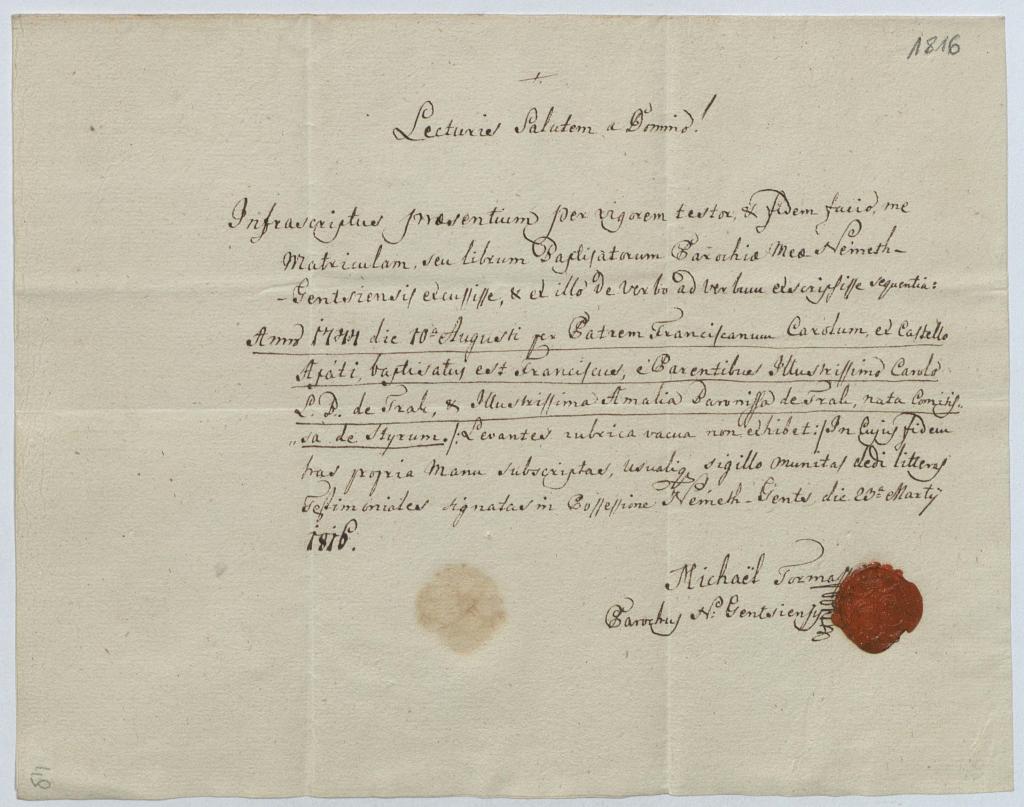 1816
+
Lecturis Salutem a Domino!
Infrascriptus præsentium per vigorem testor, & fidem facio, me
Matriculam, seu librum Baptisatorum Parochiæ Meæ Németh-
-Gentsiensis excussisse, & ex illo de verbo ad verbum exscripsisse sequentia:
Anno 1744 die 10a Augusti per Patrem Franciscanum Carolum, ex Castello
Apáti, baptisatus est Franciscus, è Parentibus Illustrissimo Carolo
L. B. de Trak, & Illustrissima Amalia Baronissa de Trak, nata Comitis-
"sa de Styrum. /: Levantes rubrica vacua non exhibet :/ In Cujus fidem
has propria Manu subscriptas, usualiqe sigillo munitas dedi litteras
Testimoniales signatas in Possessione Németh-Gents die 23a Martÿ
1816.
Michaël Torma
Parochus N. Gentsiensis
84